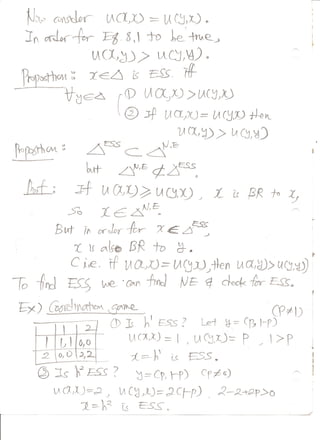 Now consider u(x,x) = u(y,x).
In order for Eq. 8.1 to be true,
u(x,y) > u(y,y).
Proposition: x∈Δ is ESS iff
∀y∈Δ ① u(x,x) > u(y,x)
② If u(x,x) = u(y,x) then
u(x,y) > u(y,y)
Proposition: Δ^ESS ⊂ Δ^N.E
but Δ^N.E ⊄ Δ^ESS.
Proof: If u(x,x) ⩾ u(y,x), x is BR to x,
so x∈Δ^N.E.
But in order for x∈Δ^ESS,
x is also BR to y.
C i.e. if u(x,x) = u(y,x), then u(x,y) > u(y,y)
To find ESS, we can find NE & check for ESS.
Ex) Coordination game (p≠1)
1 2
1 1,1 0,0
2 0,0 2,2
① Is h' ESS? Let y = (p,1-p)
u(x,x) = 1, u(y,x) = p, 1>p
x = h' is ESS.
② Is h² ESS? y = (p,1-p) (p≠0)
u(x,x) = 2, u(y,x) = 2(1-p), 2-2+2p>0
x = h² is ESS.